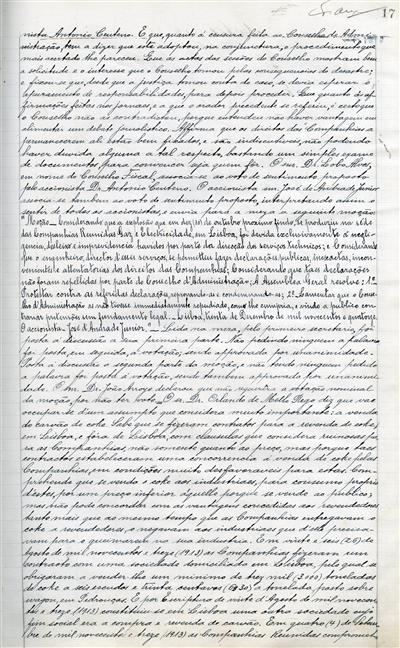 17
nista Antonio Centeno. E que, quanto á censura feita ao Conselho de Admi-
nistração, tem a dizer que este adoptou, na conjunctura, o procedimento que
mais acertado lhe pareceu. Que as actas das sessões do Conselho mostram bem
a solicitude e o interesse que o Conselho tomou pelas consequencias do desastre;
e ficou-se que, desde que a justiça tomou conta do caso, se devia esperar o
apuramento de responsabilidades, para depois proceder. Que quanto ás af-
firmações feitas nos jornaes, e a que o orador precedente se referiu, é certo que
o Conselho não as contradictou, porque entendeu não haver vantagem em
alimentar um debate jornalistico. Affirma que os direitos das Companhias a
permanecerem ali estão bem fixados, e são indiscutiveis, não podendo
haver duvida alguma a tal respeito, bastando um simples exame
de documentos para convencer seja quem fôr. O sr. Dr. Lobo Alves,
em nome do Conselho Fiscal, associa-se ao voto de sentimento proposto
pelo accionista Dr. Antonio Centeno. O accionista sr. José de Andrade Junior
associa-se tambem ao voto de sentimento proposto, interpretando assim o
sentir de todos os accionistas, e envia para a meza a seguinte moção:
"Moção — Considerando que a explosão que em dez (10) de outubro proximo findo, se produziu na séde
das Companhias Reunidas Gaz e Electricidade, em Lisboa, foi devida exclusivamente a neglı-
gencia, desleixo e imprevidencia havidos por parte da direcção dos serviços technicos; e Considerando
que o engenheiro, director d'esses serviços, se permittiu fazer declarações publicas, inexactas, incon-
venientes e attentatorias dos direitos das Companhias; Considerando que taes declarações
não foram repellidas por parte do Conselho d'Administração: A Assembleia Geral resolve: 1.º
Protestar contra as referidas declarações, repugnando-as e condemnando-as; 2.º Lamentar que o Conse-
lho d'Administração as não tivesse immediatamente repudiado, como lhe cumpria, evitando ao publico con-
tinuar pretensões sem fundamento legal. — Lisboa, trinta de Dezembro de mil novecentos e quatorze.
O accionista - José d'Andrade Junior." — Lida na meza, pelo primeiro secretario, foi
posta a discussão a sua primeira parte. Não pedindo ninguem a palavra
foi posta, em seguida, á votação, sendo approvada por unanimidade.
Posta a discutir a segunda parte da moção, e não tendo ninguem pedido
a palavra foi posta á votação, sendo tambem approvada por unanimi-
dade. O sr. Dr. João Arroyo declarou que não requeria a votação nominal
da moção, por não ter voto. O sr. Dr. Orlando de Mello Rego diz que vae
occupar-se d'um assumpto que considera muito importante: a venda
do carvão de coke. Sabe que se fizeram contractos para a revenda de coke,
em Lisboa, e fóra de Lisboa, com clausulas que considera ruinosas pa-
ra as Companhias, não sómente quanto ao preço, mas porque taes
contractos estabeleceram uma concorrencia á venda de coke pelas
Companhias, em condições muito desfavoraveis para estas. Com-
prehende que se venda o coke aos industriaes, para consumo proprio
d'estes, por um preço inferior áquelle porque se vende ao publico;
mas não póde concordar com as vantagens concedidas aos revendedores
tanto mais que ao mesmo tempo que as Companhias entregavam o
coke a revendedores, o negavam aos industriaes que d'elle precisa-
vam para o queimarem na sua industria. Em vinte e seis (26) de
Agosto de mil novecentos e treze (1913) as Companhias fizeram um
contracto com uma sociedade domiciliada em Lisboa, pelo qual se
obrigaram a vender-lhe um minimo de trez mil (3.000) toneladas
de coke a seis escudos e trinta centavos (6$30) a tonelada, posta sobre
wagon, em Pedrouços. E por Escriptura de vinte d'Agosto de mil novecen-
tos e treze (1913) constituiu-se em Lisboa uma outra sociedade cujo
fim social era a compra e revenda de carvão. Em quatro (4) de Outu-
bro de mil novecentos e treze (1913) as Companhias Reunidas comprometi-